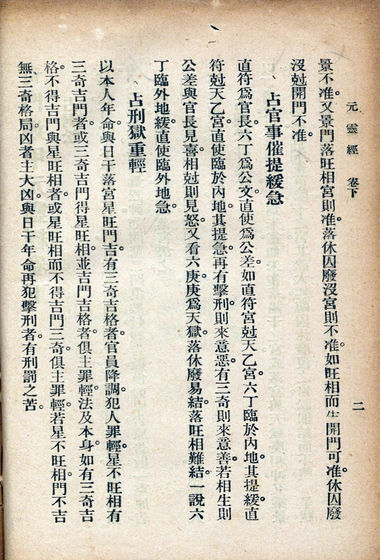 元靈經 卷下
二
景不准。又景門落旺相宮則准。落休囚廢沒宮則不准。如旺相而生開門可准。休囚廢
沒尅開門不准。
占官事催提緩急
直符爲官長。六丁爲公文。直使爲公差。如直符宮尅天乙宮。六丁臨於內地。其提緩。直
符尅天乙宮。直使臨於內地。其提急。再有擊刑。則來意惡。有三奇。則來意善。若相生。則
公差與官長見喜。相尅則見怒。又看六庚。庚爲天獄。落休廢易結。落旺相難結。一說六
丁臨外地緩。直使臨外地急。
占刑獄重輕
以本人年命與日干落宮星旺門吉有三奇吉格者。官員降調。犯人罪輕。星不旺相有
三奇吉門者。或三奇吉門得星旺相並吉門吉格者。俱主罪輕法及本身。如有三奇吉
格不得吉門與星旺相者。或星旺相而不得吉門三奇。俱主罪輕。若星不旺相門不吉
無三奇格局凶者。主大凶。與日干年命再犯擊刑者。有刑罰之苦。